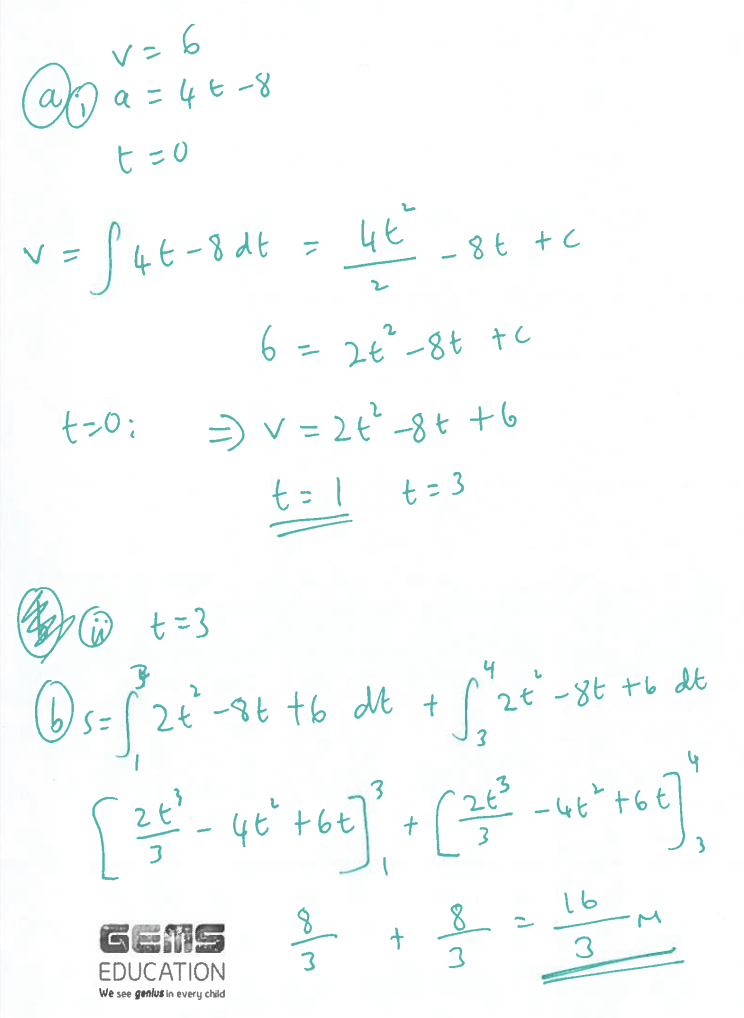 v = 6
(a)(i) a = 4t - 8
t = 0
v = ∫ 4t - 8 dt = 4t²/2 - 8t + c
6 = 2t² - 8t + c
t=0: ⇒ v = 2t² - 8t + 6
t = 1 t = 3
(ii) t = 3
(b) s = ∫₁³ 2t² - 8t + 6 dt + ∫₃⁴ 2t² - 8t + 6 dt
[2t³/3 - 4t² + 6t]₁³ + [2t³/3 - 4t² + 6t]₃⁴
8/3 + 8/3 = 16/3 M
GEMS
EDUCATION
We see genius in every child